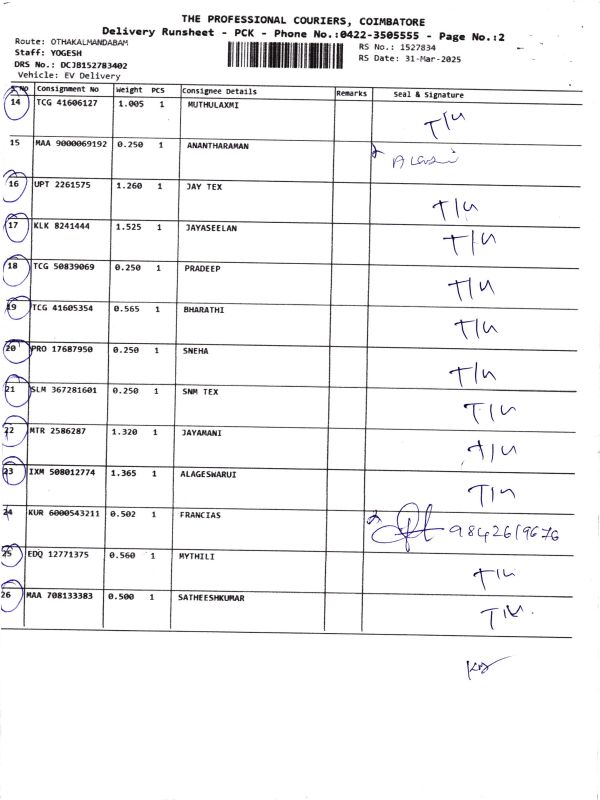 THE PROFESSIONAL COURIERS, COIMBATORE
Delivery Runsheet - PCK - Phone No.:0422-3505555 - Page No.:2
Route: OTHAKALMANDABAM
RS No.: 1527834
Staff: YOGESH
RS Date: 31-Mar-2025
DRS No.: DCJB152783402
Vehicle: EV Delivery
S NO Consignment No Weight PCS Consignee Details Remarks Seal & Signature
14 TCG 41606127 1.005 1 MUTHULAXMI T/U
15 MAA 9000069192 0.250 1 ANANTHARAMAN
16 UPT 2261575 1.260 1 JAY TEX T/U
17 KLK 8241444 1.525 1 JAYASEELAN T/U
18 TCG 50839069 0.250 1 PRADEEP T/U
19 TCG 41605354 0.565 1 BHARATHI T/U
20 PRO 17687950 0.250 1 SNEHA T/U
21 SLM 367281601 0.250 1 SNM TEX T/U
22 MTR 2586287 1.320 1 JAYAMANI T/U
23 IXM 508012774 1.365 1 ALAGESWARUI T/U
24 KUR 6000543211 0.502 1 FRANCIAS 9842619676
25 EDQ 12771375 0.560 1 MYTHILI T/U
26 MAA 708133383 0.500 1 SATHEESHKUMAR T/U.